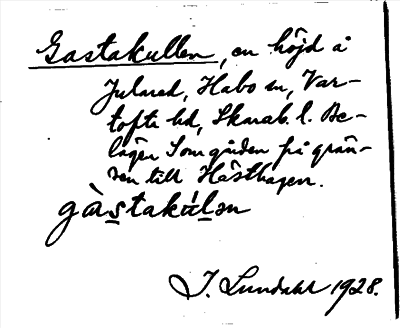 Gastakullen, en höjd å
Julared, Habo sn, Var-
tofta hd, Skarab. l. Be-
lägen som gården på grän-
sen till Hästhagen.
gàstakúlən
J. Lundahl 1928.